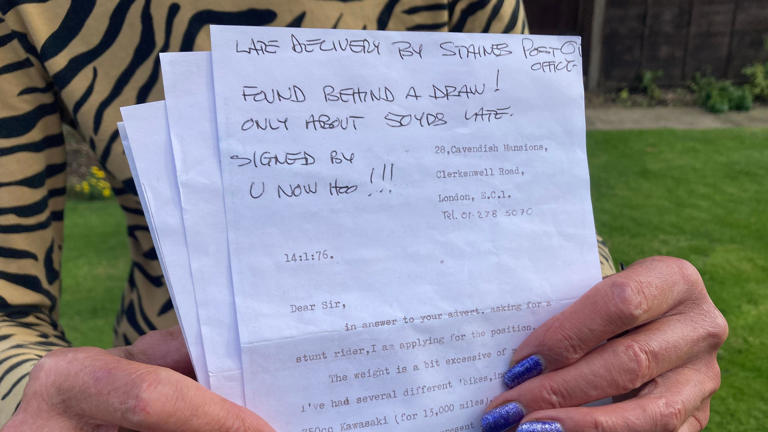 LATE DELIVERY BY STAINES POST
OFFICE
FOUND BEHIND A DRAW!
ONLY ABOUT 50YDS LATE.
SIGNED BY
U NOW HOO !!!
28,Cavendish Mansions,
Clerkenwell Road,
London, E.C.1.
Tel. 01-278 5070
14:1:76.
Dear Sir,
in answer to your advert. asking for a
stunt rider,I am applying for the position.
The weight is a bit excessive of
I've had several different 'bikes,in
750cc Kawasaki (for 15,000 miles)
present